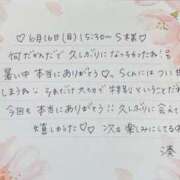 ♡6月16日(日)15:30〜 S様♡
何だかんだで久しぶりになっちゃったね!
暑い中 本当にありがとう♡。Sくんにはつい
しまうね。それだけ大切で特別ということで
今回も本当にありがとう!!久しぶりに会えて
嬉しかった♡♡ 次も楽しみにしてる
湊